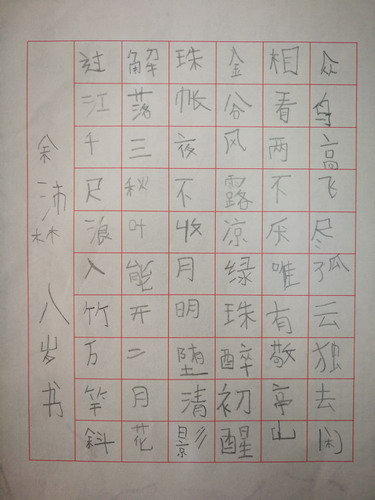 众鸟高飞尽孤云独去闲
相看两不厌唯有敬亭山
金谷风露凉绿珠醉初醒
珠帐夜不收月明堕清影
解落三秋叶能开二月花
过江千尺浪入竹万竿斜
余沛 八岁书